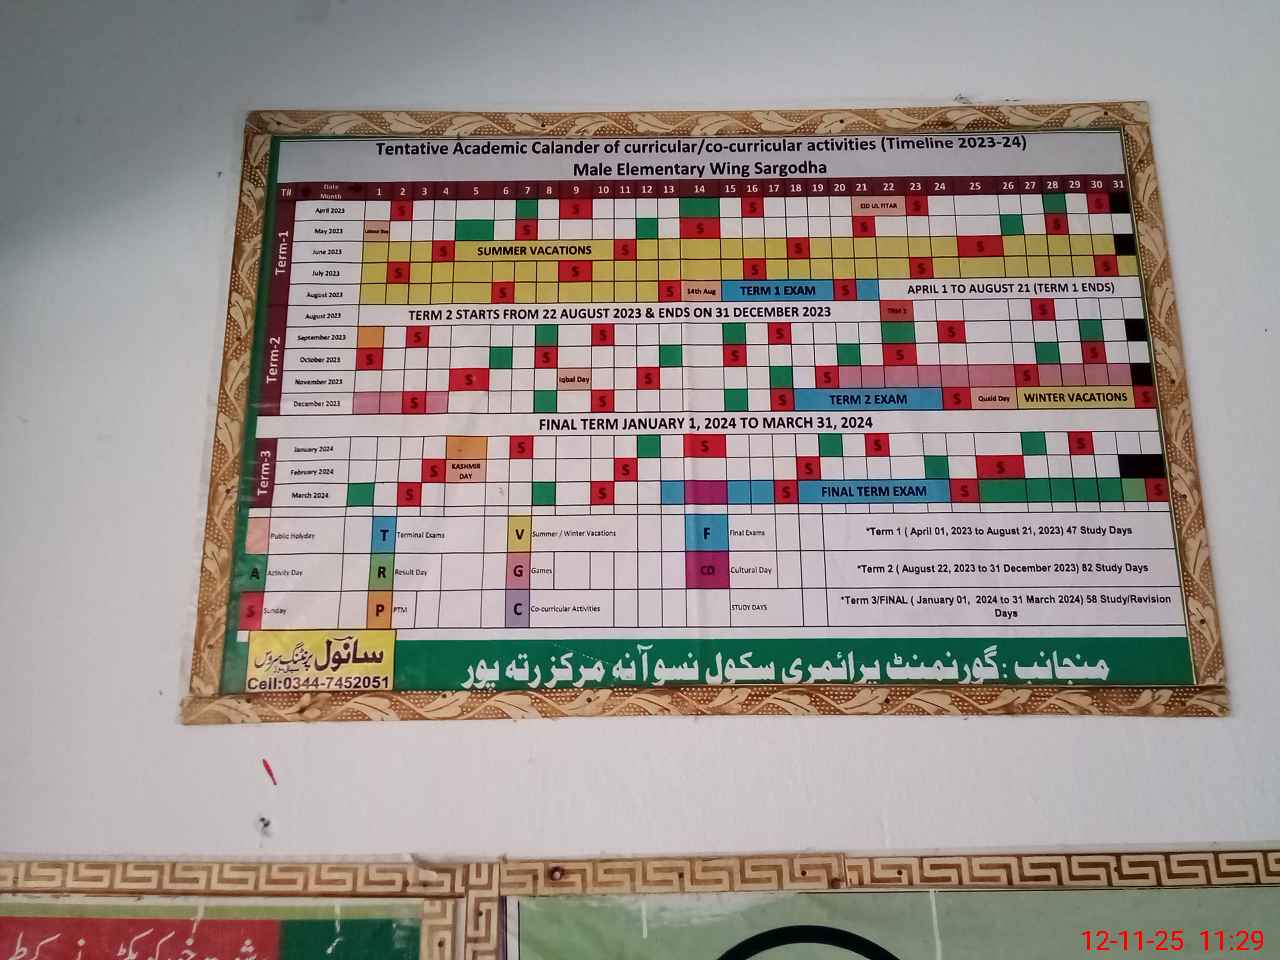 Tentative Academic Calander of curricular/co-curricular activities (Timeline 2023-24)
Male Elementary Wing Sargodha
T# Date Month 1 2 3 4 5 6 7 8 9 10 11 12 13 14 15 16 17 18 19 20 21 22 23 24 25 26 27 28 29 30 31
Term-1
April 2023 S S S EID UL FITAR S S
May 2023 Labour Day S S S S
June 2023 S SUMMER VACATIONS S S S
July 2023 S S S S S
August 2023 S S 14th Aug TERM 1 EXAM S APRIL 1 TO AUGUST 21 (TERM 1 ENDS)
Term-2
August 2023 TERM 2 STARTS FROM 22 AUGUST 2023 & ENDS ON 31 DECEMBER 2023 S
September 2023 S S S S
October 2023 S S S S S
November 2023 S Iqbal Day S S S
December 2023 S S TERM 2 EXAM S Quaid Day WINTER VACATIONS S
FINAL TERM JANUARY 1, 2024 TO MARCH 31, 2024
Term-3
January 2024 S S S S
February 2024 S KASHMIR DAY S S S
March 2024 S S S FINAL TERM EXAM S S
Public Holyday T Terminal Exams V Summer / Winter Vacations F Final Exams *Term 1 ( April 01, 2023 to August 21, 2023) 47 Study Days
A Activity Day R Result Day G Games CD Cultural Day *Term 2 ( August 22, 2023 to 31 December 2023) 82 Study Days
S Sunday P PTM C Co-curricular Activities STUDY DAYS *Term 3/FINAL ( January 01, 2024 to 31 March 2024) 58 Study/Revision Days
سانول پرنٹنگ سروس
Cell:0344-7452051
منجانب : گورنمنٹ پرائمری سکول نسوآنہ مرکز رتہ پور
12-11-25 11:29